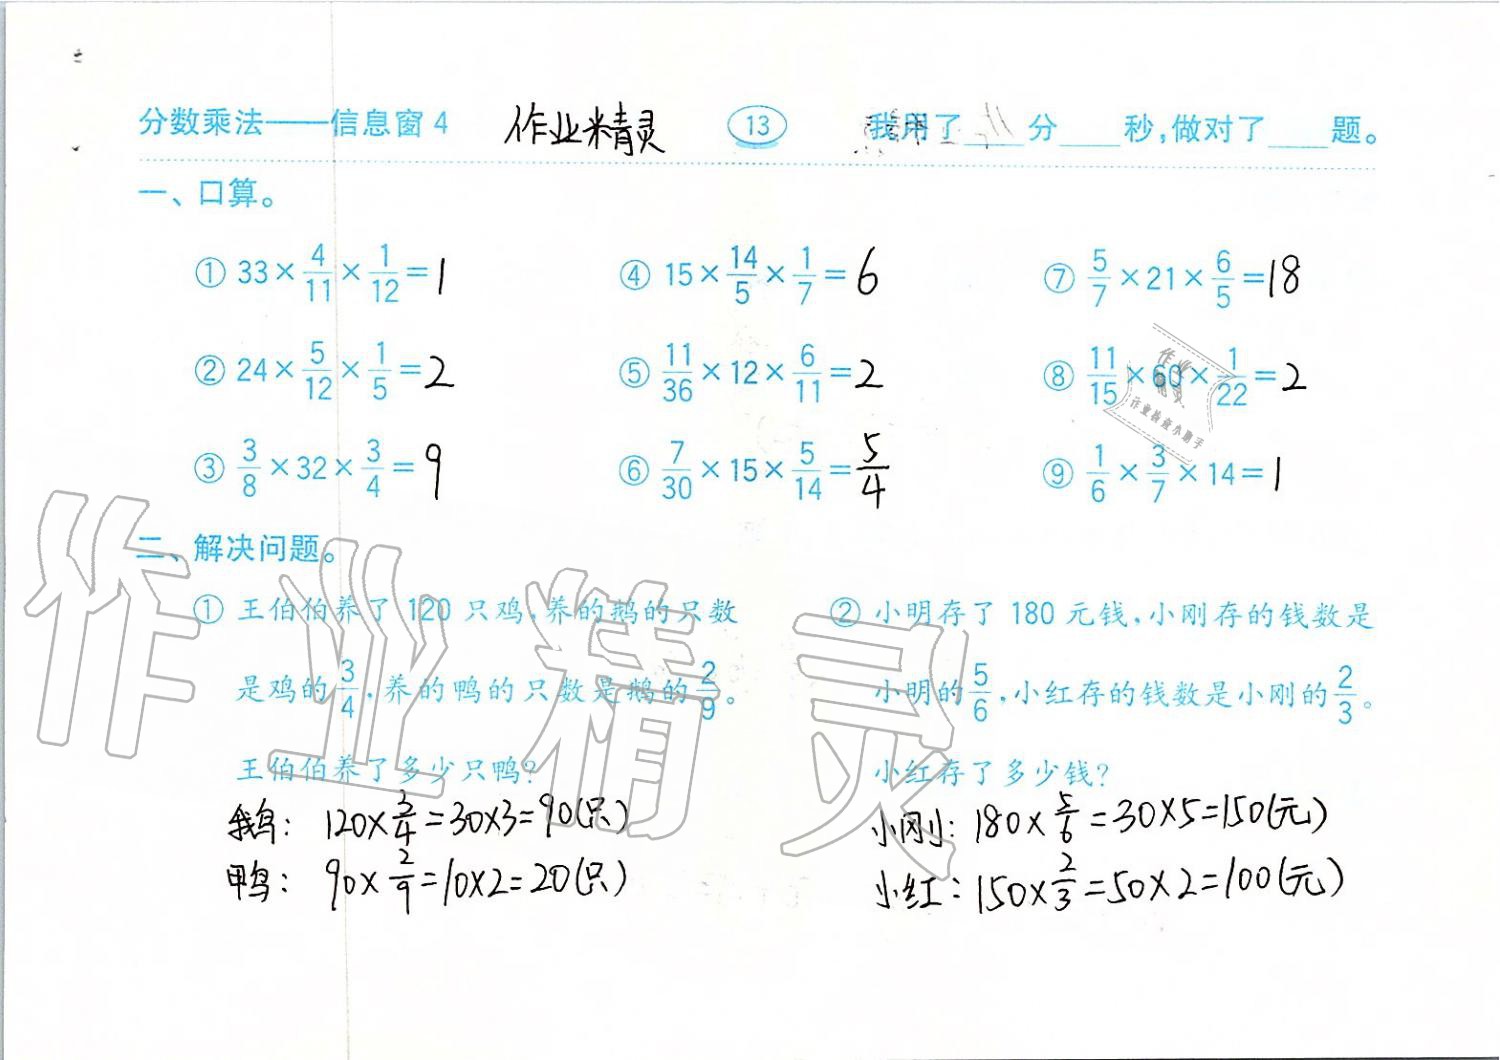 分数乘法——信息窗4 作业精灵 13 我用了____分____秒,做对了____题。
一、口算。
① 33×4/11×1/12=1 ④ 15×14/5×1/7=6 ⑦ 5/7×21×6/5=18
② 24×5/12×1/5=2 ⑤ 11/36×12×6/11=2 ⑧ 11/15×60×1/22=2
③ 3/8×32×3/4=9 ⑥ 7/30×15×5/14=5/4 ⑨ 1/6×3/7×14=1
二、解决问题。
① 王伯伯养了120只鸡,养的鹅的只数
是鸡的3/4,养的鸭的只数是鹅的2/9。
王伯伯养了多少只鸭?
鹅: 120×3/4=30×3=90(只)
鸭: 90×2/9=10×2=20(只)
② 小明存了180元钱,小刚存的钱数是
小明的5/6,小红存的钱数是小刚的2/3。
小红存了多少钱?
小刚: 180×5/6=30×5=150(元)
小红: 150×2/3=50×2=100(元)
作业精灵